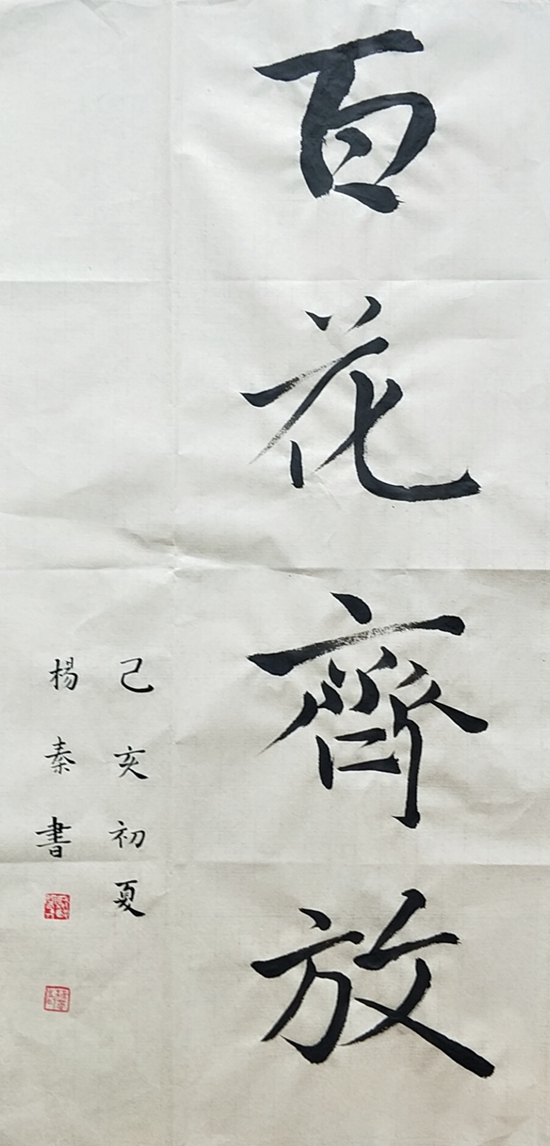 百花齊放
己亥初夏
楊秦書